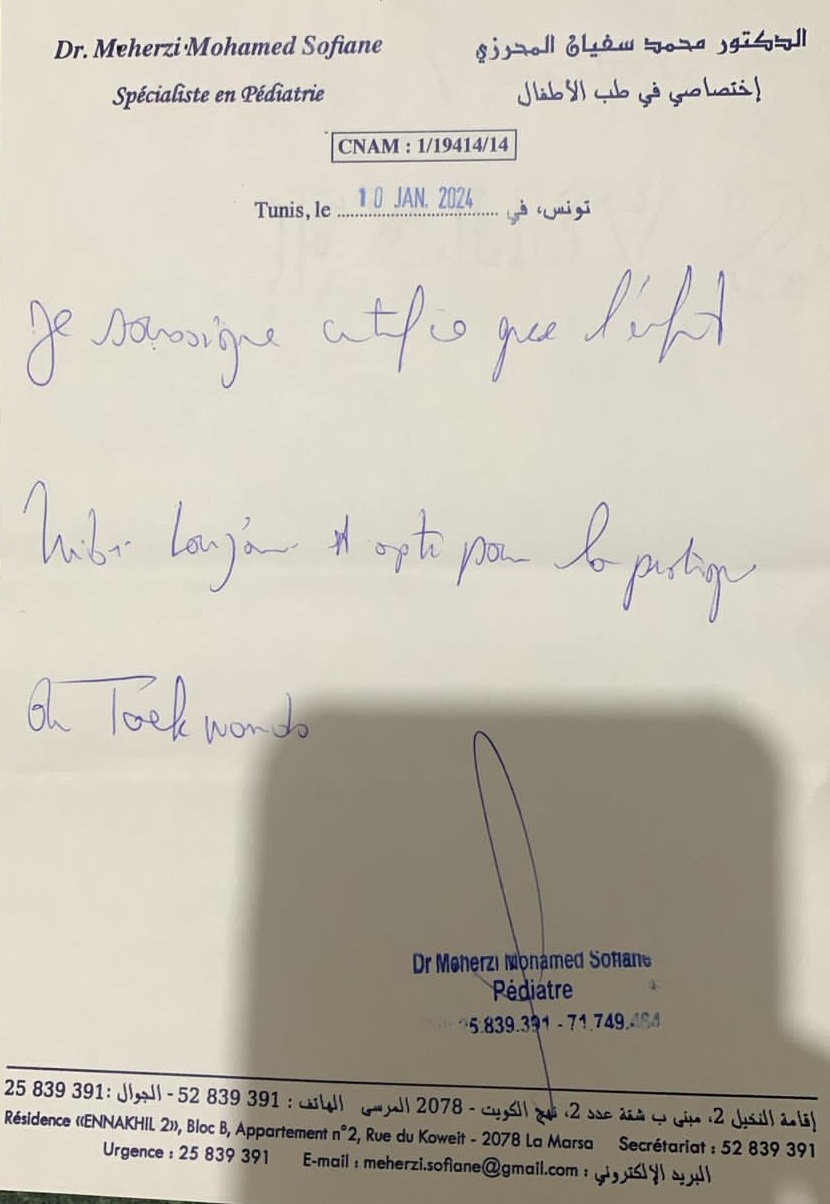 Dr. Meherzi Mohamed Sofiane
الدكتور محمد سفيان المحرزي
Spécialiste en Pédiatrie
إختصاصي في طب الأطفال
CNAM : 1/19414/14
Tunis, le 10 JAN. 2024 تونس، في
Je soussigné certifie que l'enfant
est apte pour la pratique
du Taekwondo
Dr Meherzi Mohamed Sofiane
Pédiatre
5.839.391 - 71.749.
إقامة النخيل 2، مبنى ب شقة عدد 2، نهج الكويت - 2078 المرسى الهاتف : 391 839 52 - الجوال : 391 839 25
Résidence «ENNAKHIL 2», Bloc B, Appartement n°2, Rue du Koweit - 2078 La Marsa Secrétariat : 52 839 391
Urgence : 25 839 391 E-mail : meherzi.sofiane@gmail.com : البريد الإلكتروني